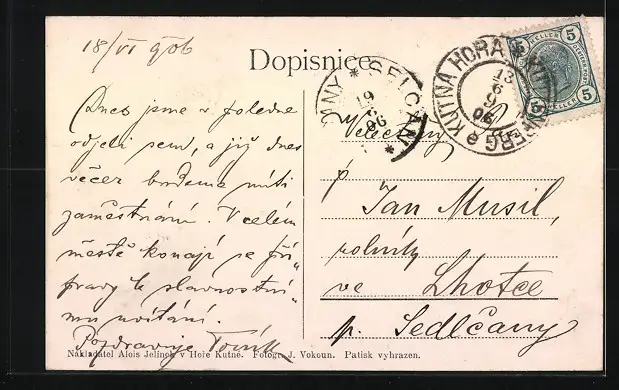 18/VI 906
Dopisnice
SELČANY * SEDLČANY *
19
6
06
KUTNÁ HORA * KUTTENBERG
13
6
06
5 HELLER 5
5 HELLER 5
Dnes jsme v poledne
odjeli sem, a již dnes
večer budeme míti
zaměstnání. V celém
městě konají se pří„
pravy k slavnostní„
mu uvítání.
Pozdravuje Toník
Velectěný
p
Jan Musil,
rolník
ve Lhotce
p. Sedlčany
Nakladatel Alois Jelínek v Hoře Kutné. Fotogr. J. Vokoun. Patisk vyhrazen.